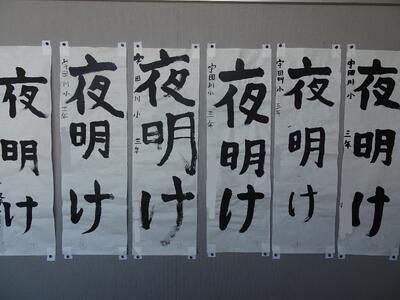 夜明け
夜明け
宇田川小 三年
夜明け
宇田川小 三年
夜明け
宇田川小 三年
夜明け
宇田川小 三年
夜明け
宇田川小 三年
夜明け